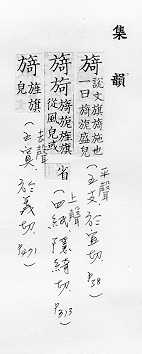 集韻
旖 說文旗旖施也
一曰旖旎盛皃
平聲
(五支 於宜切 P38)
旖 旖旎旌旗
從風皃或
省
上聲
(四紙 隱綺切 P313)
旖 旌旗
皃
去聲
(五寘 於義切 P471)